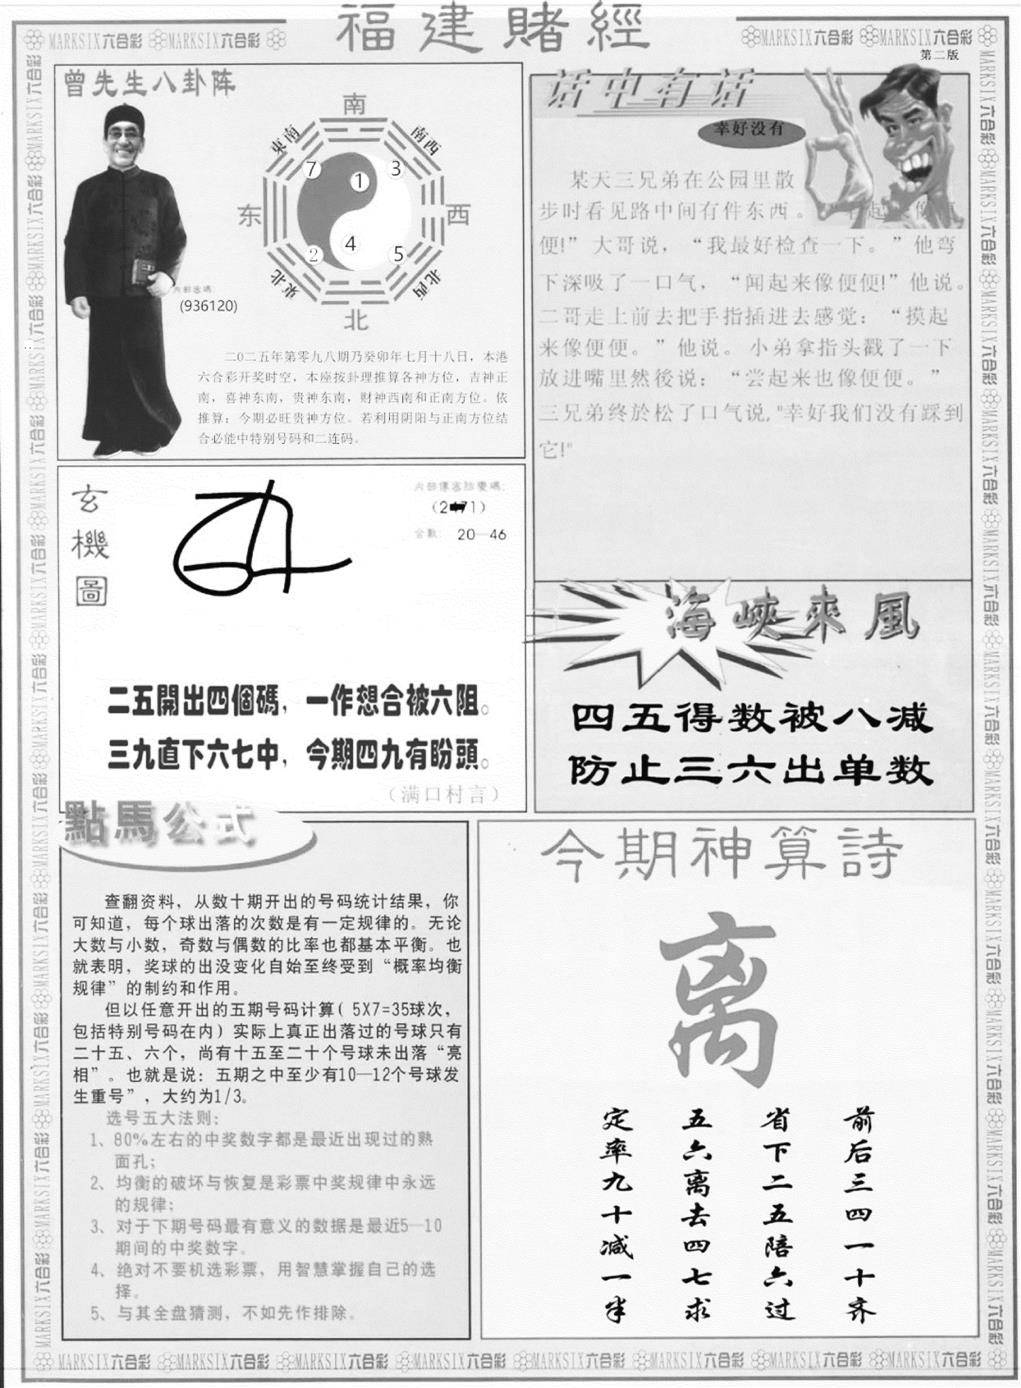 福建賭經
MARKSIX六合彩 MARKSIX六合彩
MARKSIX六合彩 MARKSIX六合彩
第二版
曾先生八卦阵
南
東南
南西
7
3
1
东
西
4
2
5
東北
北西
北
内部密碼:
(936120)
二0二五年第零九八期乃癸卯年七月十八日，本港
六合彩开奖时空，本座按卦理推算各神方位，吉神正
南，喜神东南，贵神东南，财神西南和正南方位。依
推算：今期必旺贵神方位。若利用阴阳与正南方位结
合必能中特别号码和二连码。
话中有话
幸好没有
某天三兄弟在公园里散
步时看见路中间有件东西。
便!” 大哥说，“我最好检查一下。”他弯
下深吸了一口气，“闻起来像便便!”他说。
二哥走上前去把手指插进去感觉：“摸起
来像便便。”他说。小弟拿指头戳了一下
放进嘴里然後说：“尝起来也像便便。”
三兄弟终於松了口气说,"幸好我们没有踩到
它!"
玄機圖
合數: 20—46
二五開出四個碼，一作想合被六阻。
三九直下六七中，今期四九有盼頭。
（满口村言）
海峽來風
四五得数被八减
防止三六出单数
點馬公式
查翻资料，从数十期开出的号码统计结果，你
可知道，每个球出落的次数是有一定规律的。无论
大数与小数，奇数与偶数的比率也都基本平衡。也
就表明，奖球的出没变化自始至终受到“概率均衡
规律”的制约和作用。
但以任意开出的五期号码计算( 5X7=35球次，
包括特别号码在内) 实际上真正出落过的号球只有
二十五、六个，尚有十五至二十个号球未出落“亮
相”。也就是说：五期之中至少有10—12个号球发
生重号”，大约为1/3。
选号五大法则：
1、80%左右的中奖数字都是最近出现过的熟
面孔；
2、均衡的破坏与恢复是彩票中奖规律中永远
的规律；
3、对于下期号码最有意义的数据是最近5—10
期间的中奖数字。
4、绝对不要机选彩票，用智慧掌握自己的选
择。
5、与其全盘猜测，不如先作排除。
今期神算詩
离
前后三四一十齐
省下二五陪六过
五六离去四七求
定率九十减一半
MARKSIX六合彩 MARKSIX六合彩 MARKSIX六合彩 MARKSIX六合彩 MARKSIX六合彩 MARKSIX六合彩 MARKSIX六合彩 MARKSIX六合彩